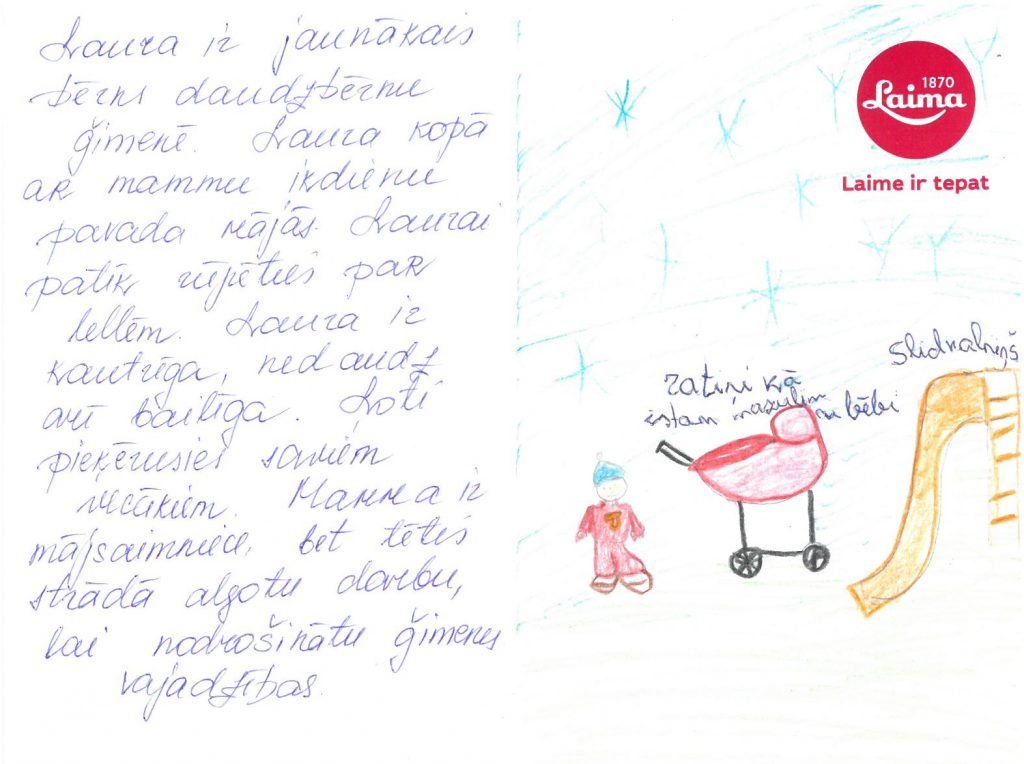 Laura ir jaunākais
bērns daudzbērnu
ģimenē. Laura kopā
ar mammu ikdienu
pavada mājās. Laurai
patīk rūpēties par
lellēm. Laura ir
kautrīga, nedaudz
arī bailīga. Ļoti
pieķērusies saviem
vecākiem. Mamma ir
mājsaimniece, bet tētis
strādā algotu darbu,
lai nodrošinātu ģimenes
vajadzības.
1870
Laima
Laime ir tepat
Slidkalniņš
ratiņi kā
īstam mazulim
bēbi